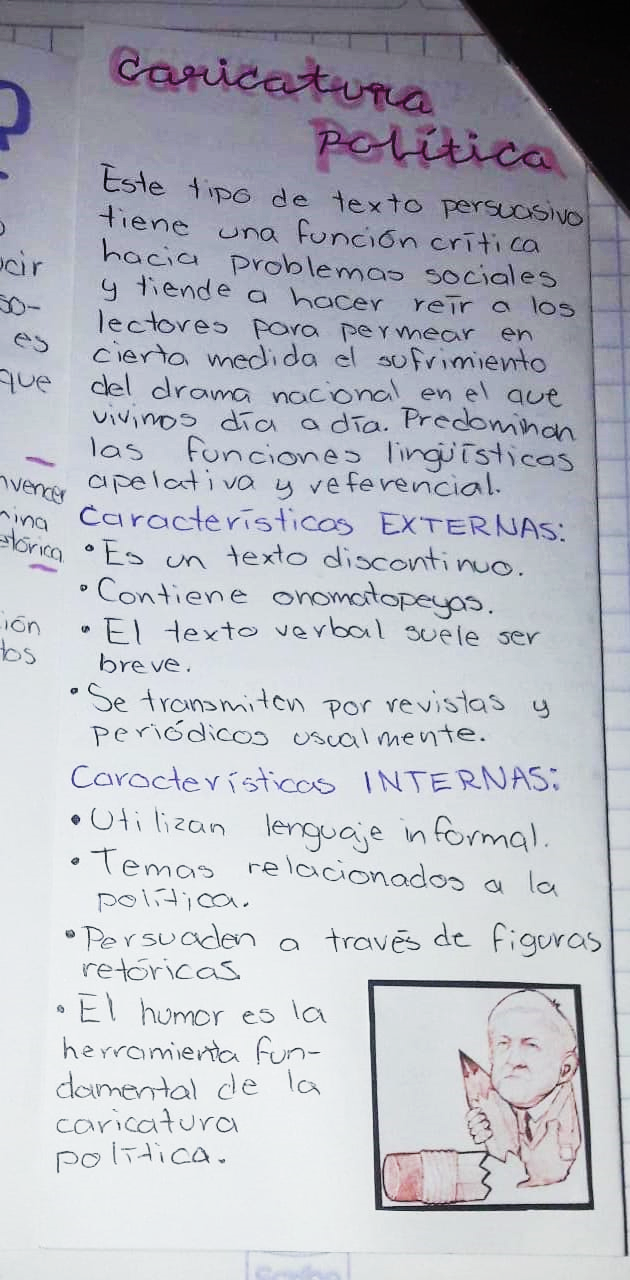 Caricatura
política
Este tipo de texto persuasivo
tiene una función crítica
hacia problemas sociales
y tiende a hacer reír a los
lectores para permear en
cierta medida el sufrimiento
del drama nacional en el que
vivimos día a día. Predominan
las funciones lingüísticas
apelativa y referencial.
Características EXTERNAS:
• Es un texto discontinuo.
• Contiene onomatopeyas.
• El texto verbal suele ser
breve.
• Se transmiten por revistas y
periódicos usualmente.
Características INTERNAS:
• Utilizan lenguaje informal.
• Temas relacionados a la
política.
• Persuaden a través de figuras
retóricas
• El humor es la
herramienta fun-
damental de la
caricatura
política.
?
cir
so-
es
que
nvencer
ina
etórica
ión
los
Scribe